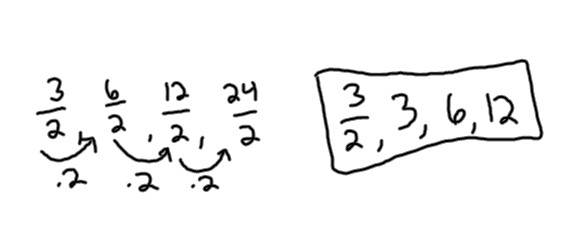 3/2, 6/2, 12/2, 24/2
·2 ·2 ·2
3/2, 3, 6, 12